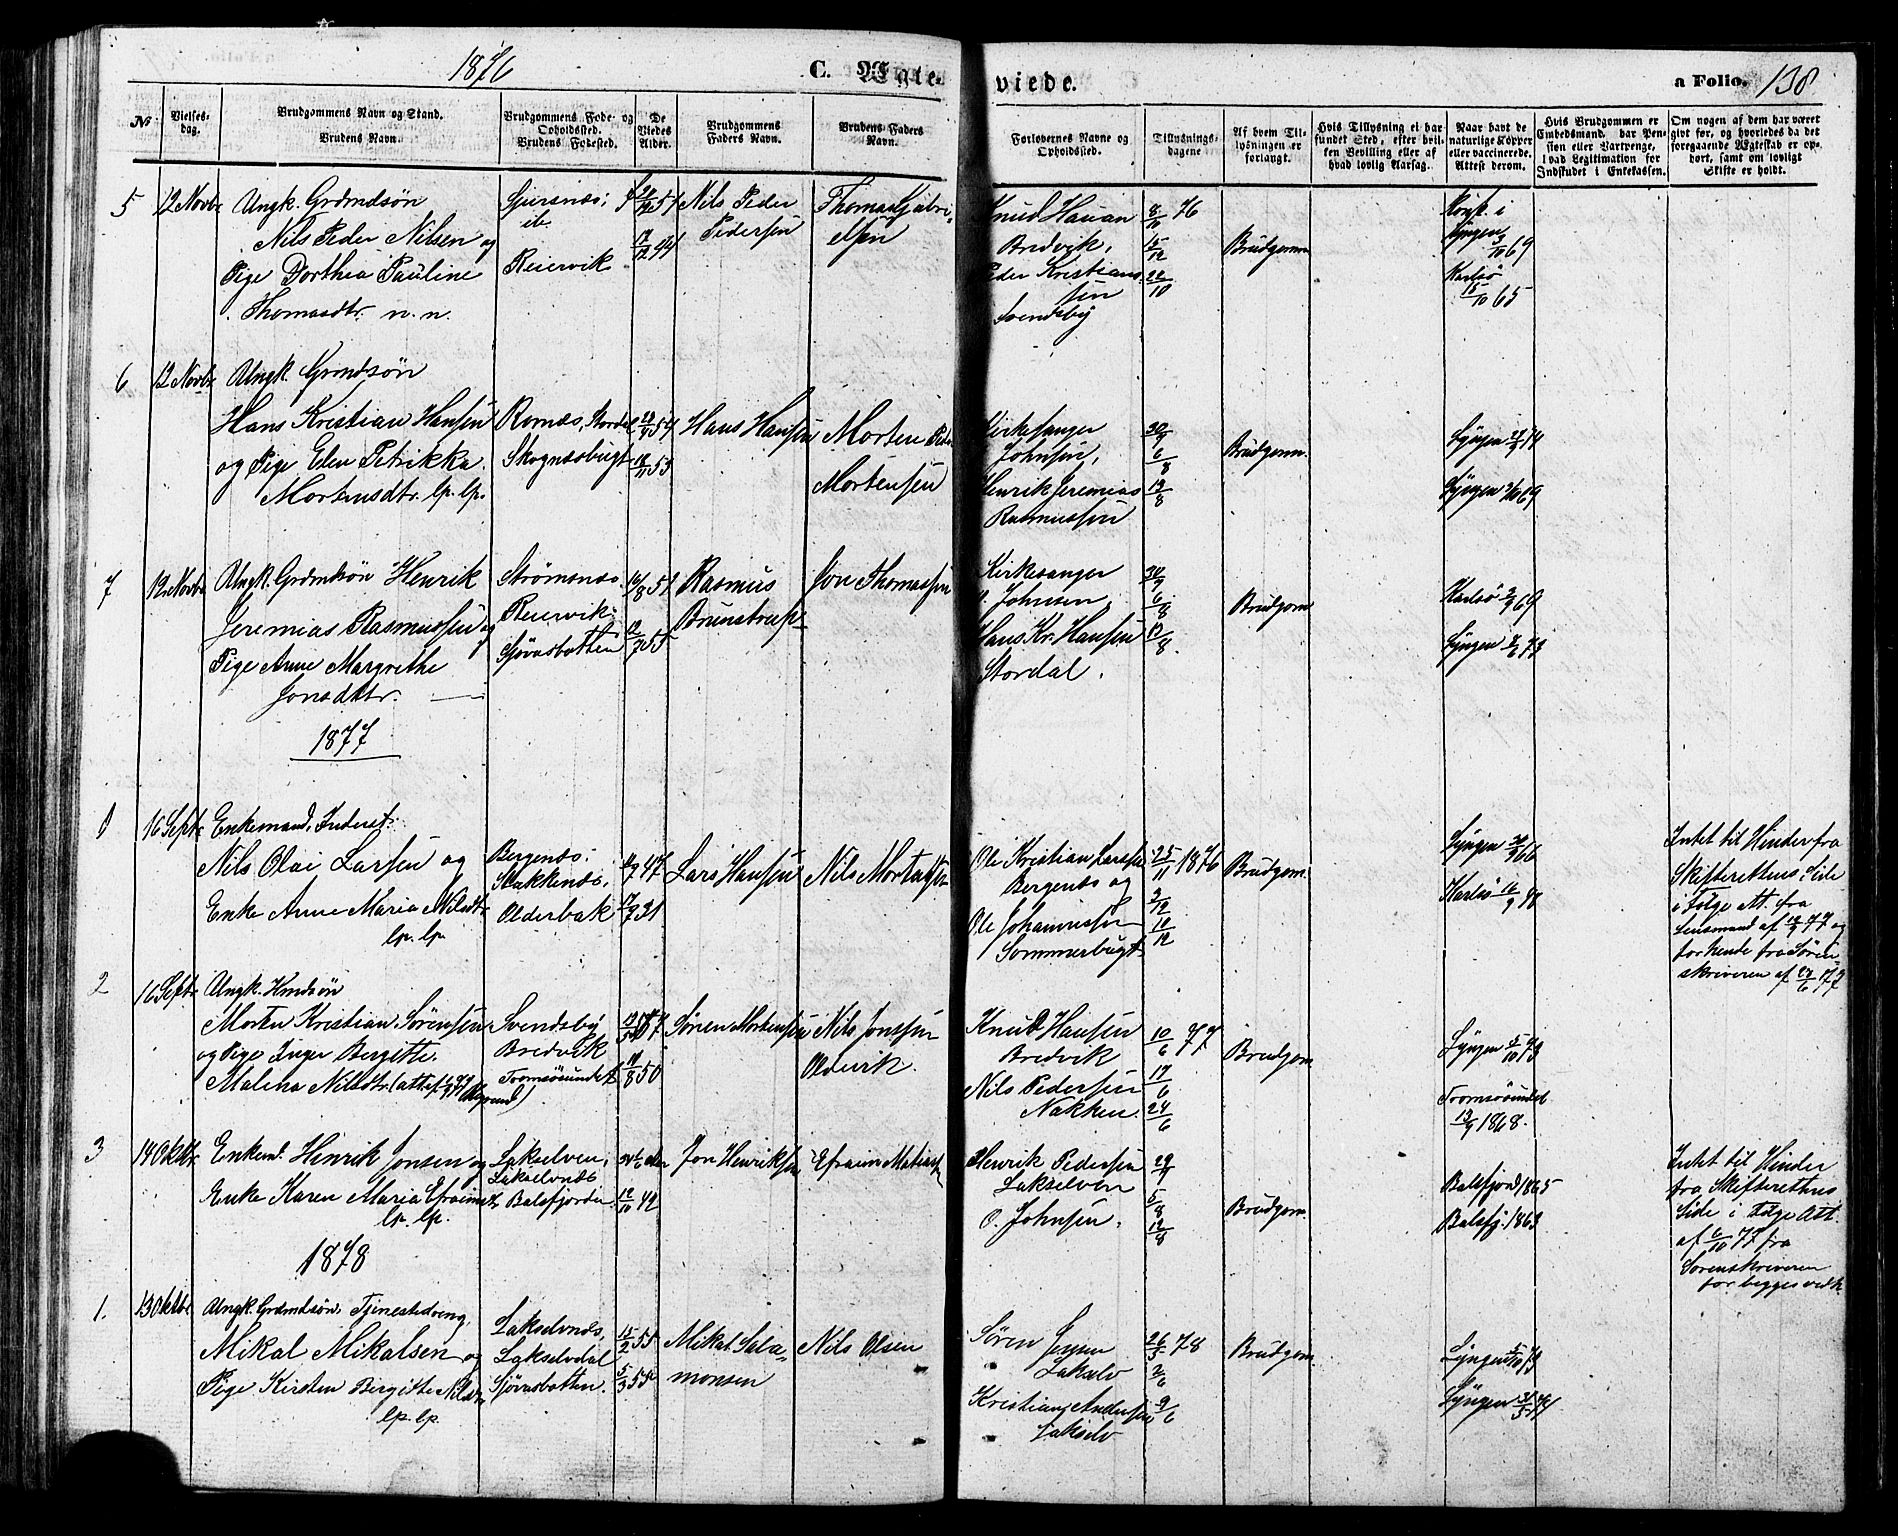 1876
C. Ægte-
viede.
a Folio. 138
No
Vielses-
dag.
Brudgommens Navn og Stand.
Brudens Navn.
Brudgommens Føde- og
Opholdssted.
Brudens Fødested.
De
Viedes
Alder.
Brudgommens
Faders Navn.
Brudens Faders
Navn.
Forlovernes Navne og
Opholdssted.
Tillysnings-
dagene
Af hvem Til-
lysningen er
forlangt.
Hvis Tillysning ei har
fundet Sted, efter hvil-
ken Bevilling eller af
hvad lovlig Aarsag.
Naar havt de
naturlige Kopper
eller vaccinerede.
Attest derom.
Hvis Brudgommen er
Embedsmand, har Pen-
sion eller Vartpenge,
hvad Legitimation for
Indskudet i Enkekassen.
Om nogen af dem har været
givt før, og hvorledes da det
foregaaende Ægteskab er op-
hørt, samt om lovligt
Skifte er holdt.
5 12 Novbr
Ungk. Grdmdsøn
Nils Peder Nilsen og
Pige Dorthea Pauline
Thomasdtr. n. n.
ib.
Reiervik
Nils Peder
Pedersen
Thomas Gabri-
elsen
Knud Hauan
Bredvik,
Peder Kristian-
sen
Svendsby
8/10 76
15/10
22/10
Brudgomm
Lyngen
69
Karlsö
15/10 65
6 12 Novbr
Ungk. Grmdsøn
Hans Kristian Hansen
og Pige Elen Petrikka
Mortensdtr. lp. lp.
Skognæsbugt
Hans Hansen
Morten Peder
Mortensen
Kirkesanger
Johnsen,
Henrik Jeremias
Rasmussen
30/7
6/8
13/8
Brudgomm.
Lyngen 74
Lyngen 69
7 12 Novbr
Ungk. Grdmdsøn Henrik
Jeremias Rasmussen og
Pige Anne Margrethe
Jonsdtr.
Strømsnæs
Reiervik
Sjøvasbotten
Rasmus
Jon Thomassen
Kirkesanger
O. Johnsen,
Hans Kr. Hansen
Stordal.
6/8
13/8
Brudgom
Karlsö 69
Lyngen 73
1877
1 16 Septr
Enkemand, Inderst
Nils Olai Larsen og
Enke Anne Maria Nilsdtr
lp. lp.
Bergenæs,
Stakkenæs,
Olderbak
47
17/7 31
Lars Hansen
Nils Mortensen
Ole Kristian Larsen
Bergenæs og
Ole Johannesen
Sommerbugt
25/11 1876
3/12
10/12
Brudgom.
Lyngen 66
Karlsö 48
Intet til Hinder fra
Skifterettens Side
i Følge Att. fra
Lensmand af 77 og
for Kende fra Soren-
skriveren af 77
2 16 Septr
Ungk. Hmdsøn
Morten Kristian Sørensen
og Pige Inger Bergitte
Malena Nilsdtr
Svendsby
Bredvik
Tromsøsundet
50
Søren Mortensen
Nils Jonssen
Oldervik.
Knud Hansen
Bredvik
Nils Pedersen
Nakken
10/6 77
17/6
24/6
Brudgom
Lyngen 5/10 73
Tromsösundet
13/9 1868.
3 14 Oktbr.
Enkemd. Henrik Jonsen og
Enke Karen Maria Efraimsdtr
lp. lp.
Lakselven,
Lakselvnæs
Balsfjorden
12/10 42
Jon Henriksen
Efraim Matiassen
Henrik Pedersen
Lakselven
O. Johnsen,
29/7
5/8
12/8
Brudgom.
Balsfjord 1865
Balsfj. 1863
Intet til Hinder
fra Skifterettens
Side i Følge Att.
af 6/10 77 fra
Sorenskriveren
for begges vedk
1878
1. 13 Oktbr
Ungk. Grdmdsøn, Tjenestedreng,
Mikal Mikalsen og
Pige Kirsten Bergitte Nilsdtr
lp. lp.
Lakselvnæs,
Lakselvdal
Sjøvasbotten.
15/2 55
5/3 55
Mikal Sala-
monsen
Nils Olsen
Søren Jensen
Lakselv
Kristian Andersen
Lakselv
26/5 78
2/6
9/6
Brudgom
Lyngen 5/10 73
Lyngen